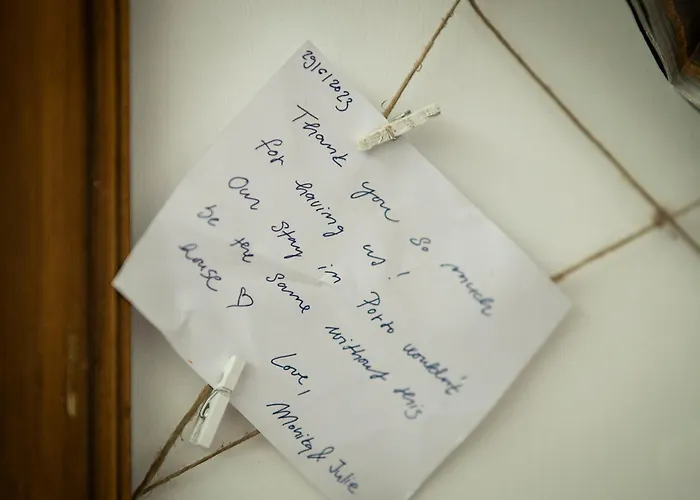 29/6/2023
Thank you so much
for having us!
Our stay in Porto wouldn't
be the same without this
house ♡
Love,
Monika & Julie